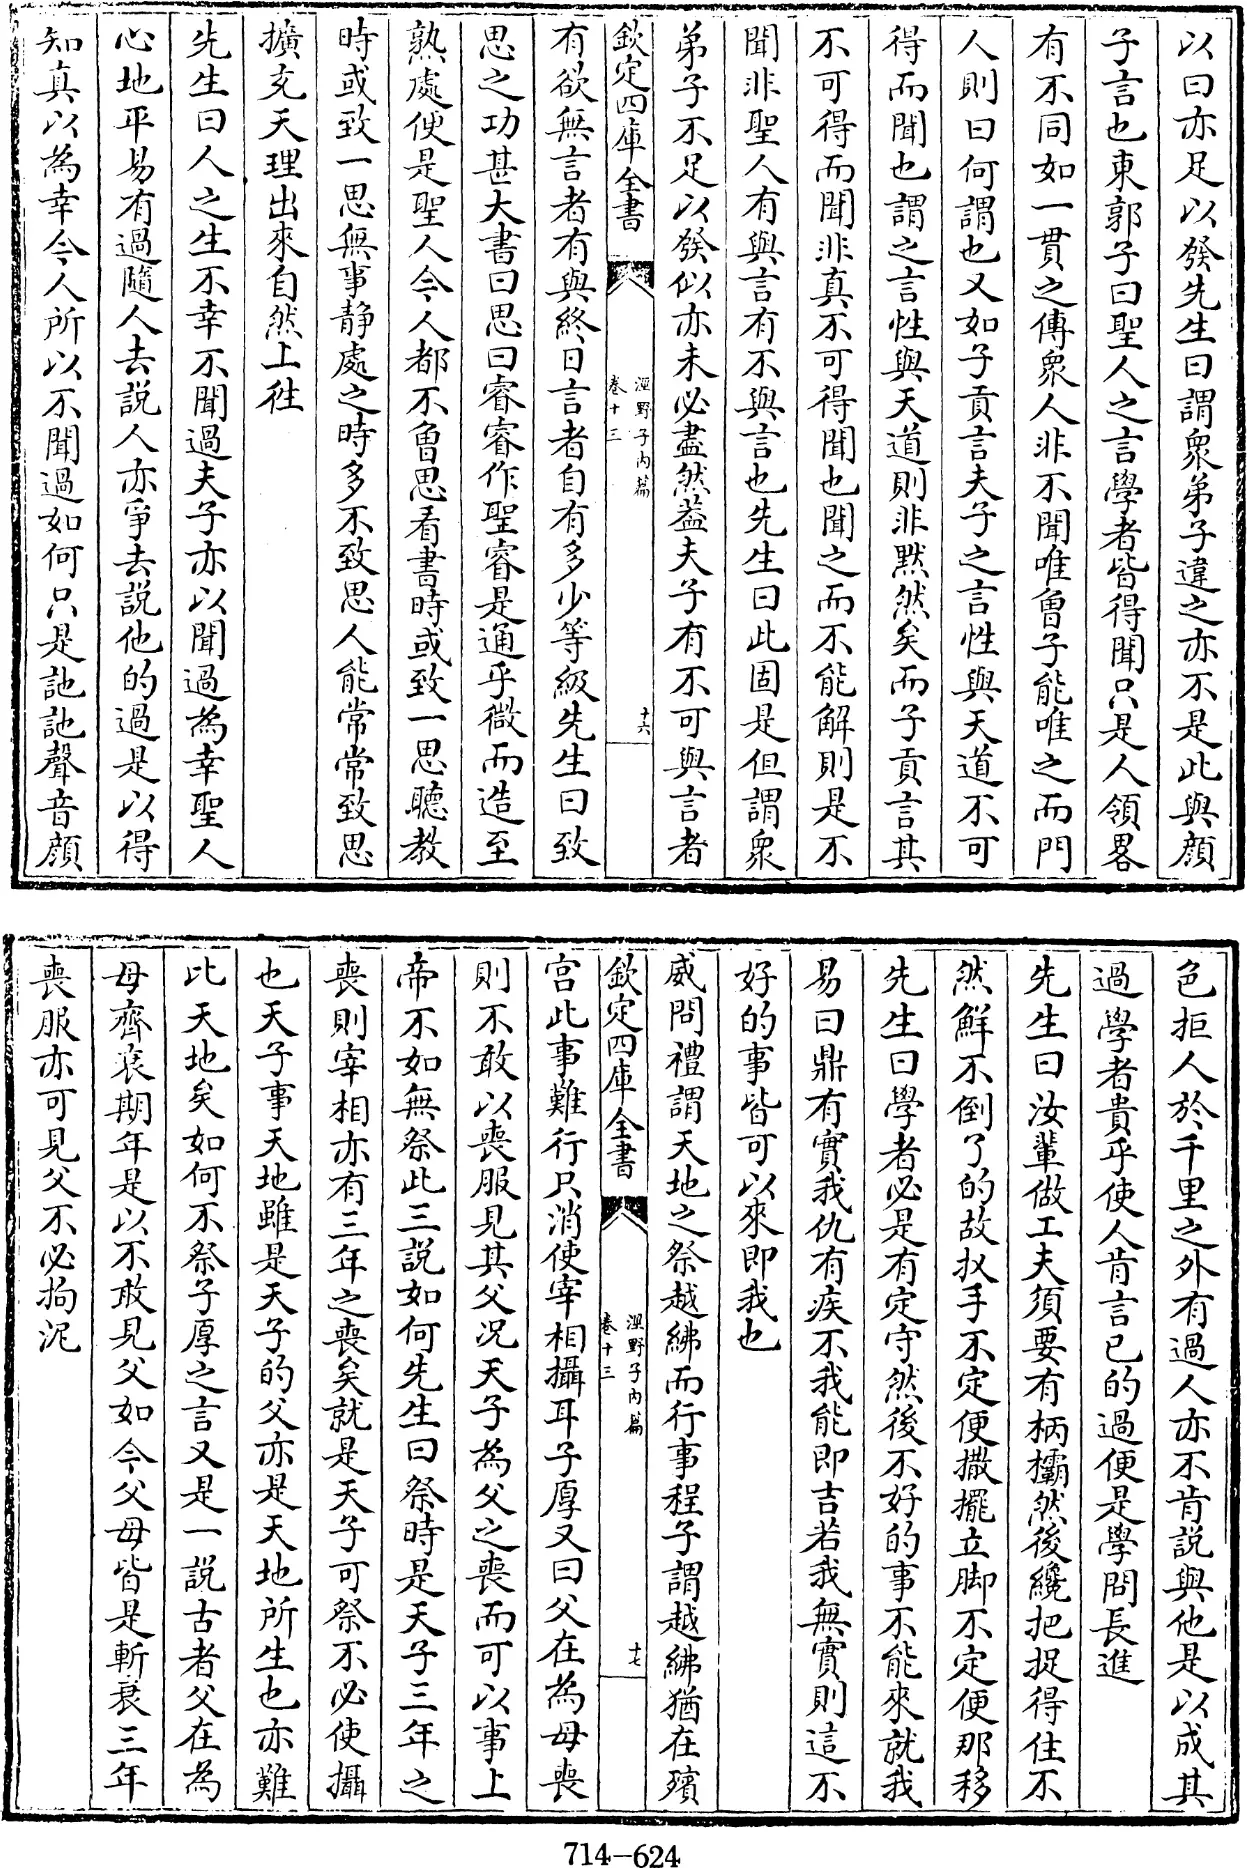 以曰亦足以發先生曰謂衆弟子違之亦不是此與顔
子言也東郭子曰聖人之言學者皆得聞只是人領畧
有不同如一貫之傳衆人非不聞唯曾子能唯之而門
人則曰何謂也又如子貢言夫子之言性與天道不可
得而聞也謂之言性與天道則非黙然矣而子貢言其
不可得而聞非真不可得聞也聞之而不能解則是不
聞非聖人有與言有不與言也先生曰此固是但謂衆
弟子不足以發似亦未必盡然葢夫子有不可與言者
欽定四庫全書
涇野子内篇
卷十三
十六
有欲無言者有與終日言者自有多少等級先生曰致
思之功甚大書曰思曰睿睿作聖睿是通乎微而造至
熟處便是聖人今人都不曾思看書時或致一思聽教
時或致一思無事静處之時多不致思人能常常致思
擴充天理出來自然上徃
先生曰人之生不幸不聞過夫子亦以聞過為幸聖人
心地平易有過隨人去説人亦爭去説他的過是以得
知真以為幸今人所以不聞過如何只是訑訑聲音顔
色拒人於千里之外有過人亦不肯説與他是以成其
過學者貴乎使人肯言已的過便是學問長進
先生曰汝輩做工夫須要有柄欛然後纔把捉得住不
然鮮不倒了的故扠手不定便撒擺立脚不定便那移
先生曰學者必是有定守然後不好的事不能來就我
易曰鼎有實我仇有疾不我能即吉若我無實則這不
好的事皆可以來即我也
威問禮謂天地之祭越紼而行事程子謂越紼猶在殯
欽定四庫全書
涇野子内篇
卷十三
十七
宫此事難行只消使宰相攝耳子厚又曰父在為母喪
則不敢以喪服見其父况天子為父之喪而可以事上
帝不如無祭此三説如何先生曰祭時是天子三年之
喪則宰相亦有三年之喪矣就是天子可祭不必使攝
也天子事天地雖是天子的父亦是天地所生也亦難
此天地矣如何不祭子厚之言又是一説古者父在為
母齊衰期年是以不敢見父如今父母皆是斬衰三年
喪服亦可見父不必拘泥
714-624